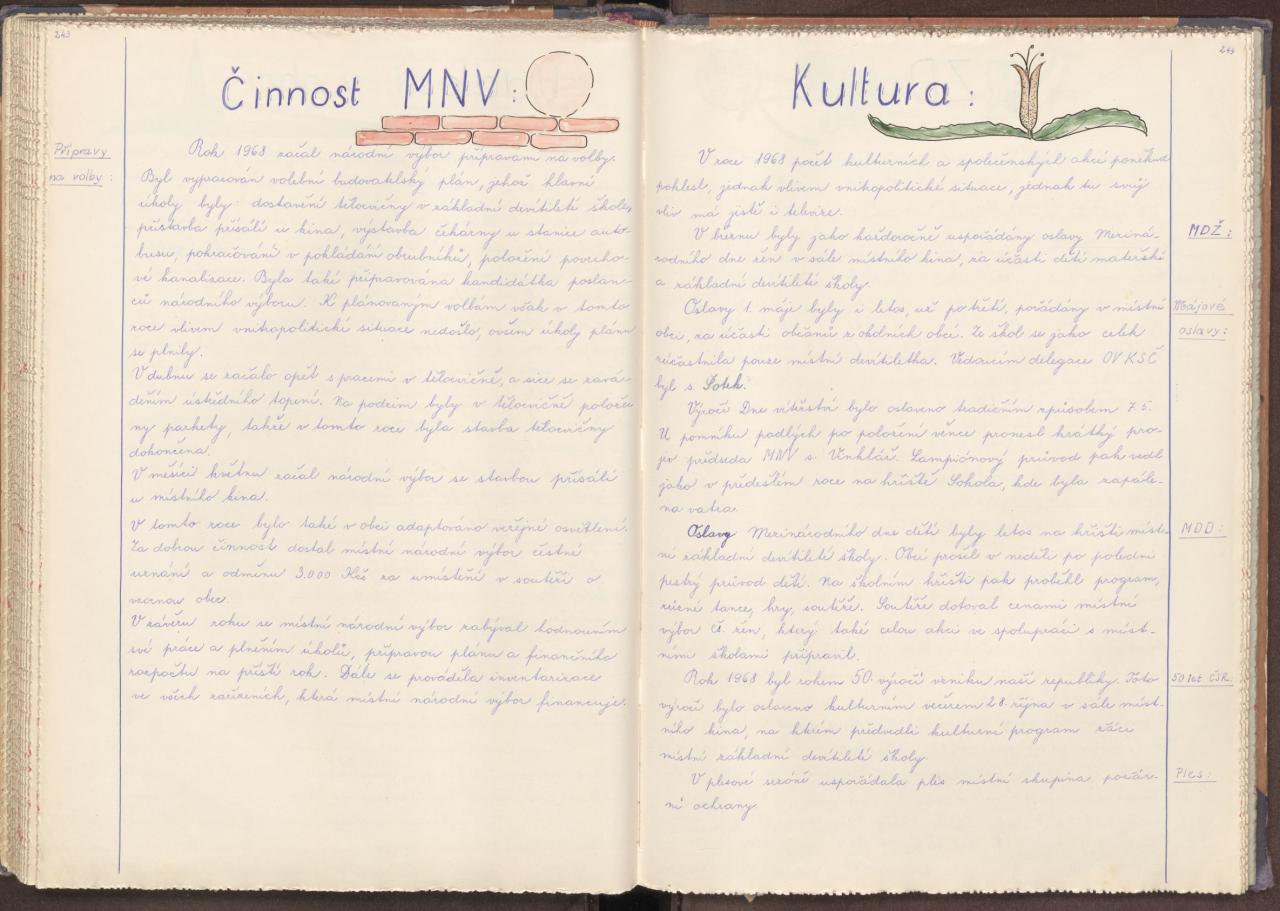 243
Činnost MNV:
Přípravy
na volby:
Rok 1968 začal národní výbor přípravami na volby.
Byl vypracován volební budovatelský plán, jehož hlavní
úkoly byly: dostavění tělocvičny v základní devítileté škole,
přístavba přísálí u kina, výstavba čekárny u stanice auto-
busu, pokračování v pokládání obrubníků, položení povrcho-
vé kanalizace. Byla také připravována kandidátka poslan-
ců národního výboru. K plánovaným volbám však v tomto
roce vlivem vnitropolitické situace nedošlo, ovšem úkoly plánu
se plnily.
V dubnu se začalo opět s pracemi v tělocvičně, a sice se zavá-
děním ústředního topení. Na podzim byly v tělocvičně polože-
ny parkety, takže v tomto roce byla stavba tělocvičny
dokončena.
V měsíci květnu začal národní výbor se stavbou přísálí
u místního kina.
V tomto roce bylo také v obci adaptováno veřejné osvětlení.
Za dobrou činnost dostal místní národní výbor čestné
uznání a odměnu 3.000 Kčs za umístění v soutěži o
vzornou obec.
V závěru roku se místní národní výbor zabýval hodnocením
své práce a plněním úkolů, přípravou plánu a finančního
rozpočtu na příští rok. Dále se prováděla inventarizace
ve všech zařízeních, která místní národní výbor financuje.
Kultura:
V roce 1968 počet kulturních a společenských akcí poněkud
poklesl, jednak vlivem vnitropolitické situace, jednak tu svůj
vliv má jistě i televize.
MDŽ:
V březnu byly jako každoročně uspořádány oslavy Meziná-
rodního dne žen v sále místního kina, za účasti dětí mateřské
a základní devítileté školy.
Májové
oslavy:
Oslavy 1. máje byly i letos, už po třetí, pořádány v místní
obci, za účasti občanů z okolních obcí. Ze škol se jako celek
zúčastnila pouze místní devítiletka. Vedoucím delegace OV KSČ
byl s. Šotek.
Výročí Dne vítězství bylo oslaveno tradičním způsobem 7.5.
U pomníku padlých po položení věnce pronesl krátký pro-
jev předseda MNV s. Vinklář. Lampiónový průvod pak vedl
jako v předešlém roce na hřiště Sokola, kde byla zapále-
na vatra.
MDD:
Oslavy Mezinárodního dne dětí byly letos na hřišti míst-
ní základní devítileté školy. Obcí prošel v neděli po poledni
pestrý průvod dětí. Na školním hřišti pak proběhl program,
různé tance, hry, soutěže. Soutěže dotoval cenami místní
výbor čs. žen, který také celou akci ve spolupráci s míst-
ními školami připravil.
50 let ČSR:
Rok 1968 byl rokem 50. výročí vzniku naší republiky. Toto
výročí bylo oslaveno kulturním večírem 28. října v sále míst-
ního kina, na kterém předvedli kulturní program žáci
místní základní devítileté školy.
Ples:
V plesové sezóně uspořádala ples místní skupina požár-
ní ochrany.